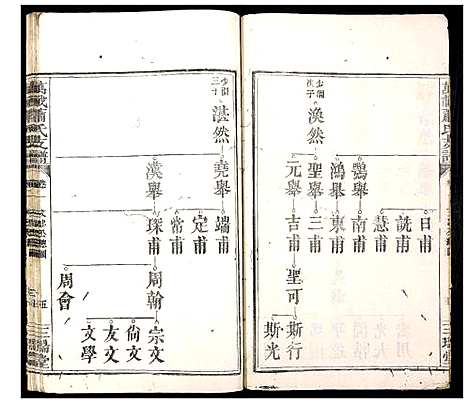 少個次子
渙然
鶚舉
鴻舉
聖舉
元舉
日甫
詵甫
慧甫
南甫
東甫
二甫
吉甫
聖可
斯行
斯光
少個三子
湛然
堯舉
漢舉
端甫
定甫
常甫
琛甫
周翰
周會
宗文
尙文
友文
文學